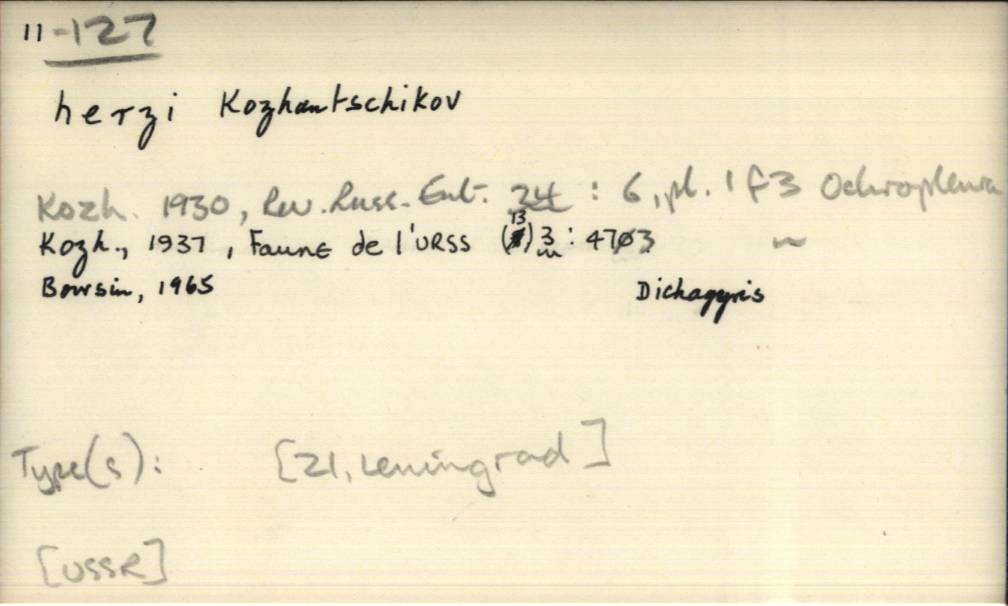 11-127
herzi Kozhantschikov
Kozh. 1930, Rev. Russ. Ent. 24 : 6, pl. 1 f 3 Ochropleura
Kozh., 1937, Faune de l'URSS (13) 3 : 473 ~
Boursin, 1965 Dichagyris
Type(s): [ZI, Leningrad]
[USSR]